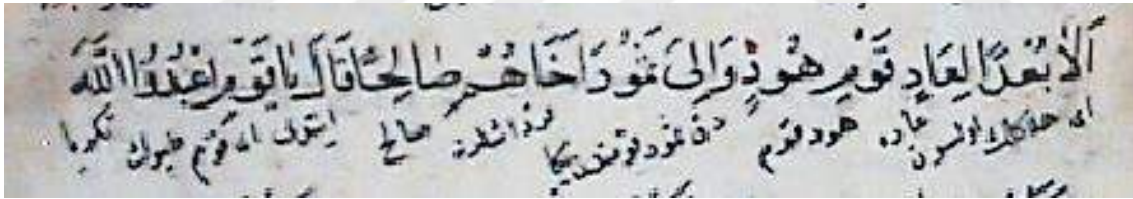 اَلَا بُعْدًا لِعَادٍ قَوْمِ هُودٍ وَاِلَى ثَمُودَ اَخَاهُمْ صَالِحًا قَالَ يَا قَوْمِ اعْبُدُوا اللّٰهَ
اى هلاكلك اولسون عاده هود قوم دخى ثمود قرنداشلرن صالح اى قوم طپوك تكريا